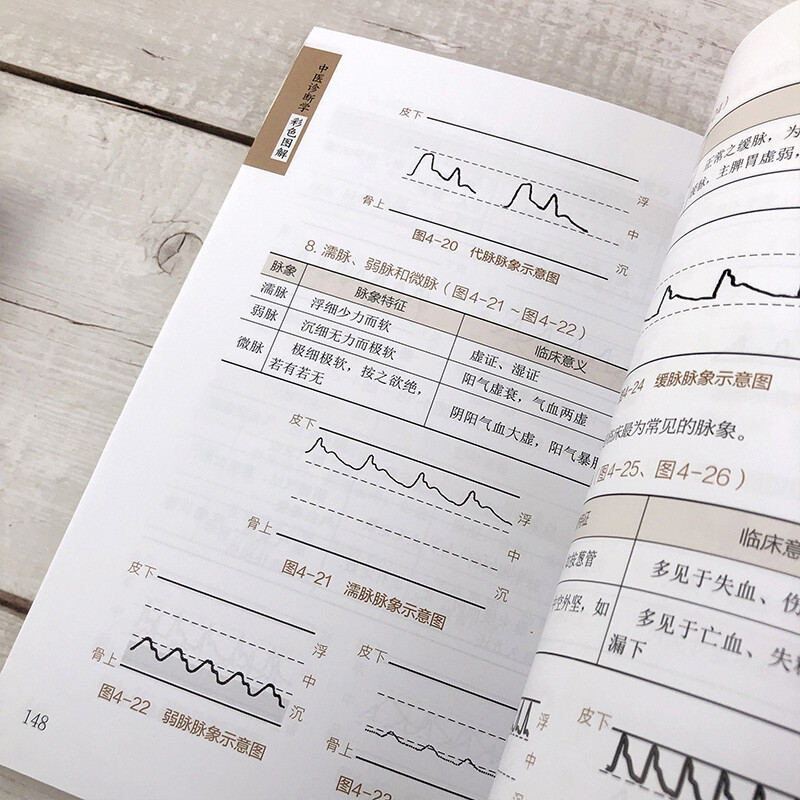 中医诊断学
彩色图解
皮下
浮
中
沉
骨上
图4-20 代脉脉象示意图
8. 濡脉、弱脉和微脉（图4-21～图4-22）
脉象 脉象特征 临床意义
濡脉 浮细少力而软 虚证、湿证
弱脉 沉细无力而极软 阳气虚衰，气血两虚
微脉 极细极软，按之欲绝，
若有若无 阴阳气血大虚，阳气暴
皮下
浮
中
沉
骨上
图4-21 濡脉脉象示意图
皮下
浮
中
沉
骨上
图4-22 弱脉脉象示意图
皮下
浮
中
骨上
148
正常之缓脉，为
主脾胃虚弱，
4-24 缓脉脉象示意图
床最为常见的脉象。
图4-25、图4-26）
临床意
按葱管 多见于失血、伤
空外坚，如 多见于亡血、失
漏下
皮下